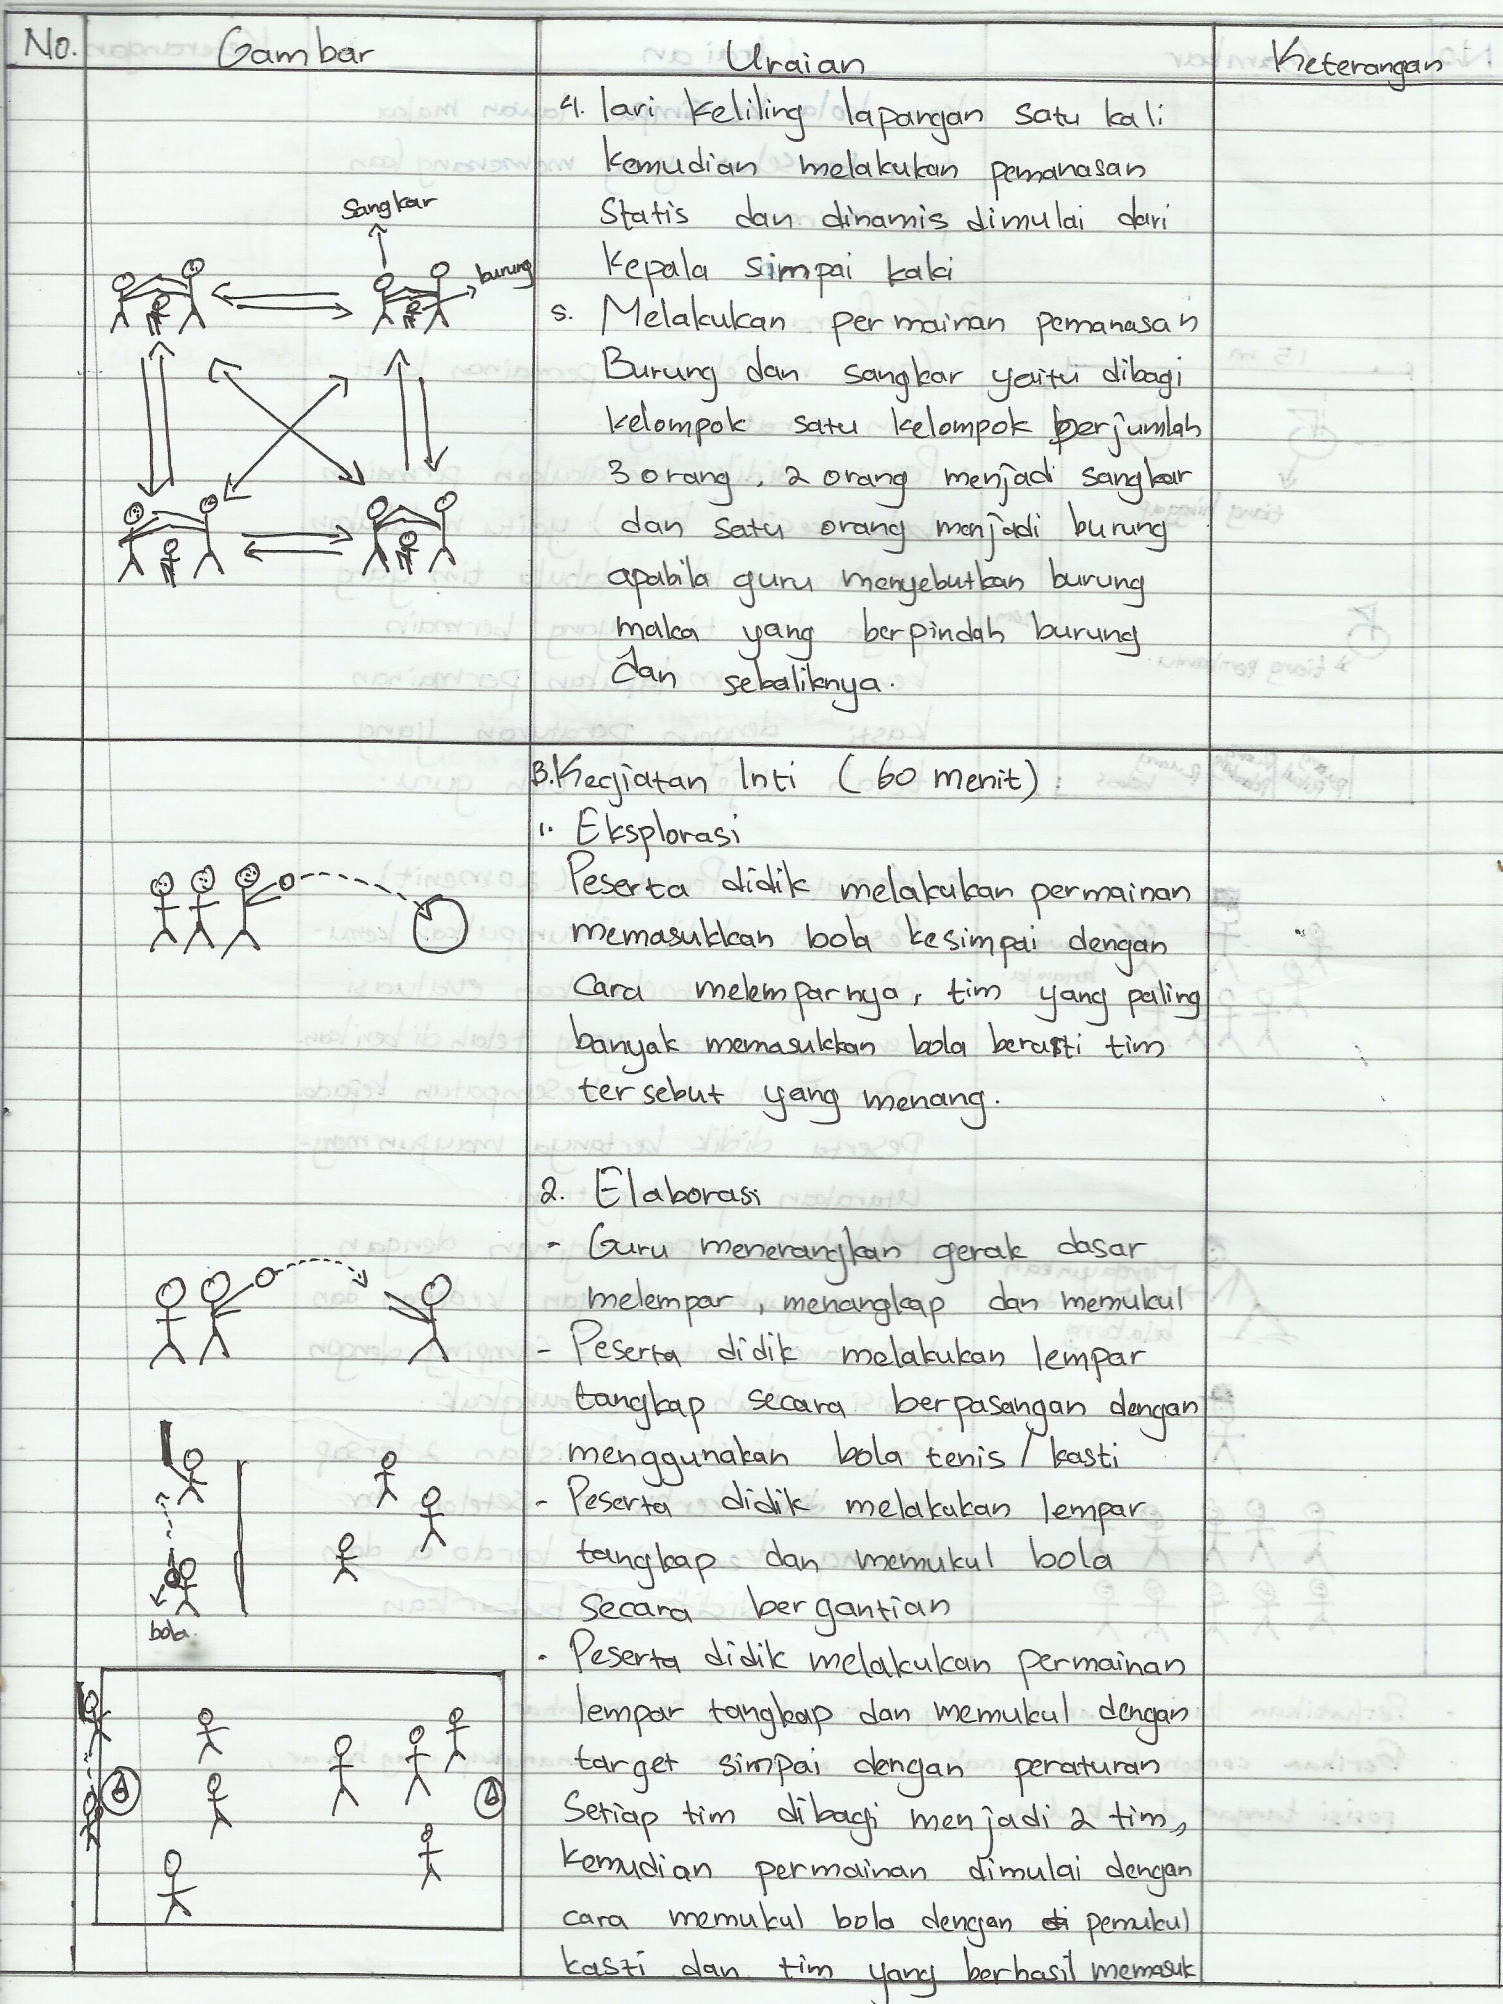 No. Gambar Uraian Keterangan
4. lari keliling lapangan satu kali
kemudian melakukan pemanasan
Statis dan dinamis dimulai dari
kepala simpai kaki
Sangkar
burung
5. Melakukan permainan pemanasan
Burung dan sangkar yaitu dibagi
kelompok satu kelompok berjumlah
3 orang, 2 orang menjadi sangkar
dan satu orang menjadi burung
apabila guru menyebutkan burung
maka yang berpindah burung
dan sebaliknya.
B. Kegiatan Inti (60 menit)
1. Eksplorasi
Peserta didik melakukan permainan
memasukkan bola kesimpai dengan
Cara melemparnya, tim yang paling
banyak memasukkan bola berarti tim
tersebut yang menang.
2. Elaborasi
- Guru menerangkan gerak dasar
melempar, menangkap dan memukul
- Peserta didik melakukan lempar
tangkap secara berpasangan dengan
menggunakan bola tenis / kasti
- Peserta didik melakukan lempar
tangkap dan memukul bola
Secara bergantian
bola
- Peserta didik melakukan permainan
lempar tangkap dan memukul dengan
target simpai dengan peraturan
Setiap tim dibagi menjadi 2 tim,
kemudian permainan dimulai dengan
cara memukul bola dengan pemukul
kasti dan tim yang berhasil memasuk